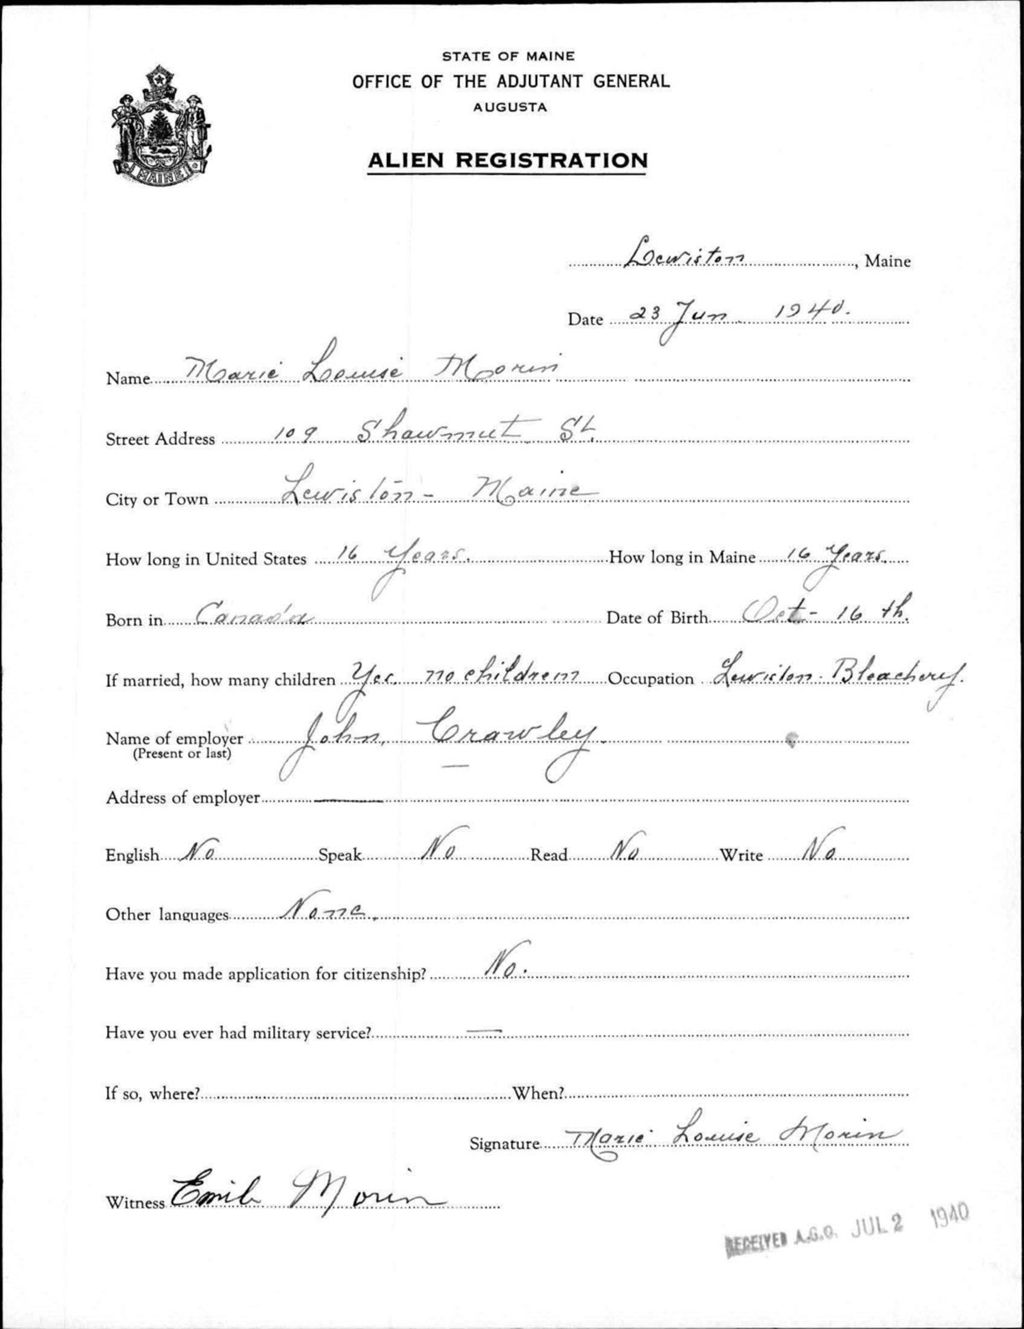 STATE OF MAINE
OFFICE OF THE ADJUTANT GENERAL
AUGUSTA
ALIEN REGISTRATION
MAINE
Lewiston, Maine
Date 23 Jun 1940.
Name Marie Louise Morin
Street Address 109 Shawmut St.
City or Town Lewiston - Maine
How long in United States 16 Years. How long in Maine 16 Years.
Born in Canada Date of Birth Oct - 16 th.
If married, how many children Yes. no children Occupation Lewiston - Bleachery.
Name of employer John Crawley.
(Present or last)
Address of employer
English No Speak No Read No Write No
Other languages None.
Have you made application for citizenship? No.
Have you ever had military service? —
If so, where? When?
Signature Marie Louise Morin
Witness Emile Morin
RECEIVED A.G.O. JUL 2 1940